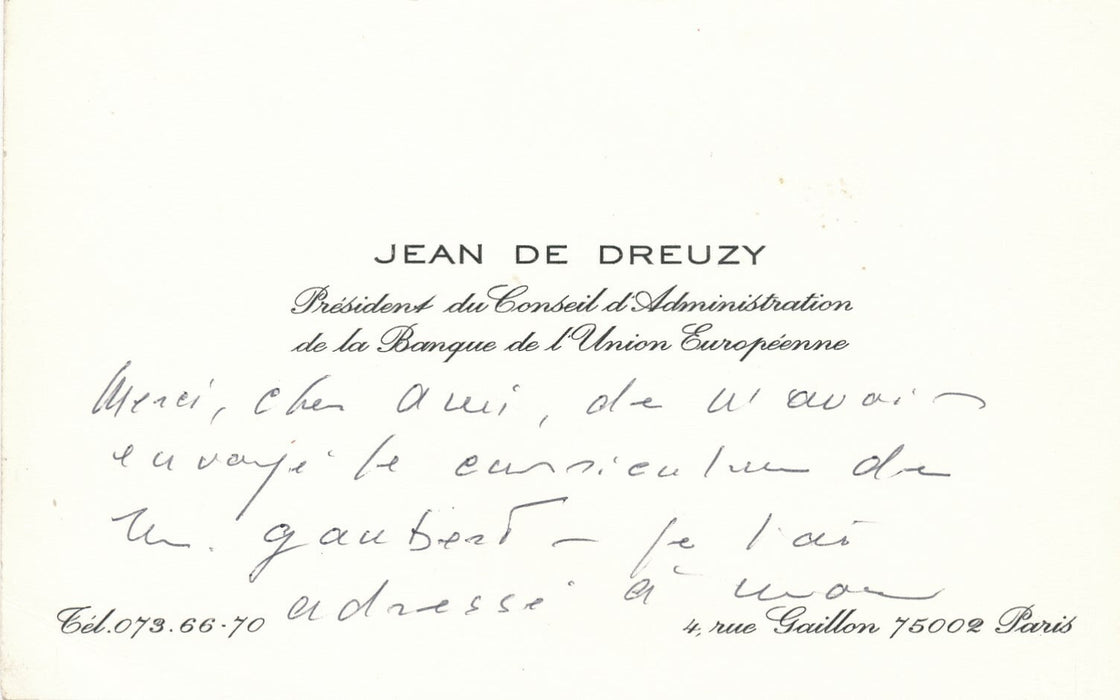 JEAN DE DREUZY
Président du Conseil d'Administration
de la Banque de l'Union Européenne
Merci, cher Ami, de m'avoir
envoyé le curriculum de
M. Gaubert – je l'ai
adressé à mon
Tél. 073.66-70
4, rue Gaillon 75002 Paris